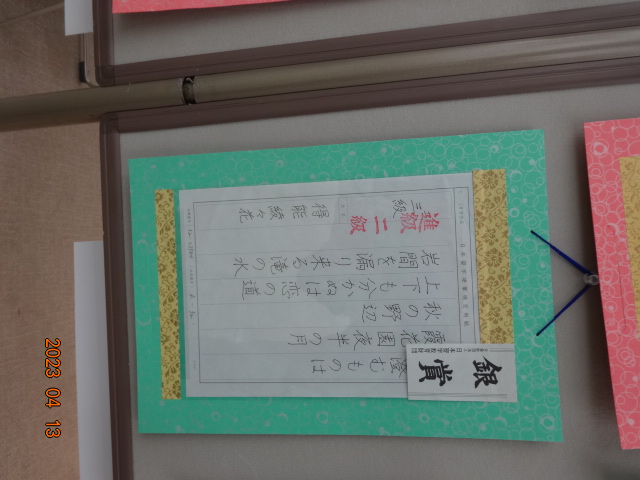 銀賞
澄むものは
霞花園夜半の月
秋の野辺
上下も分かぬは恋の道
岩間を漏り来る滝の水
三級
進級二級
得能綾々花
2023 04 13